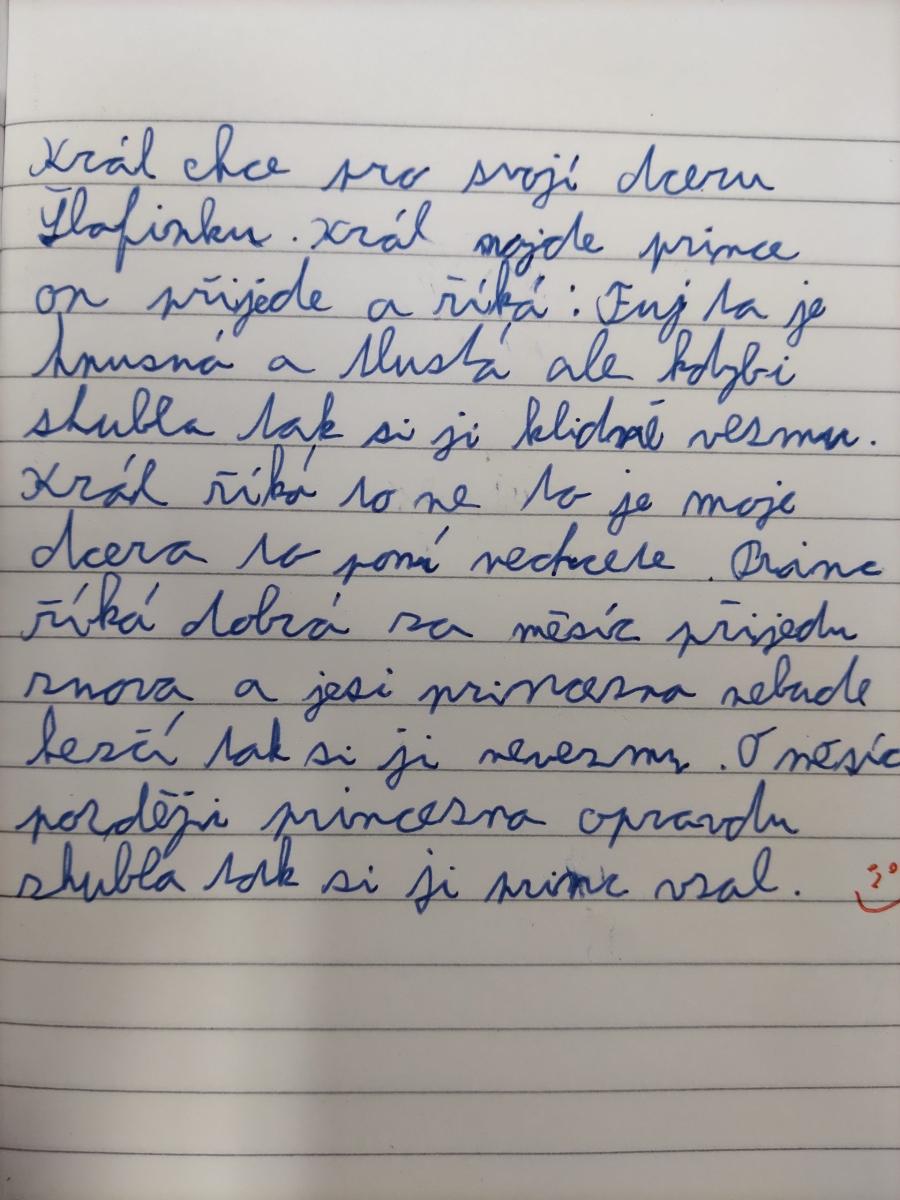 Král chce pro svojí dceru
Šlafinku. Král najde prince
on přijede a říká: Fuj ta je
hnusná a tlustá ale kdybi
zhubla tak si ji klidně vezmu.
Král říká to ne to je moje
dcera to poní nechcete. Princ
říká dobrá za měsíc přijedu
znova a jesi princezna nebude
hezčí tak si ji nevezmu. O měsíc
později princezna opravdu
zhubla tak si ji princ vzal.